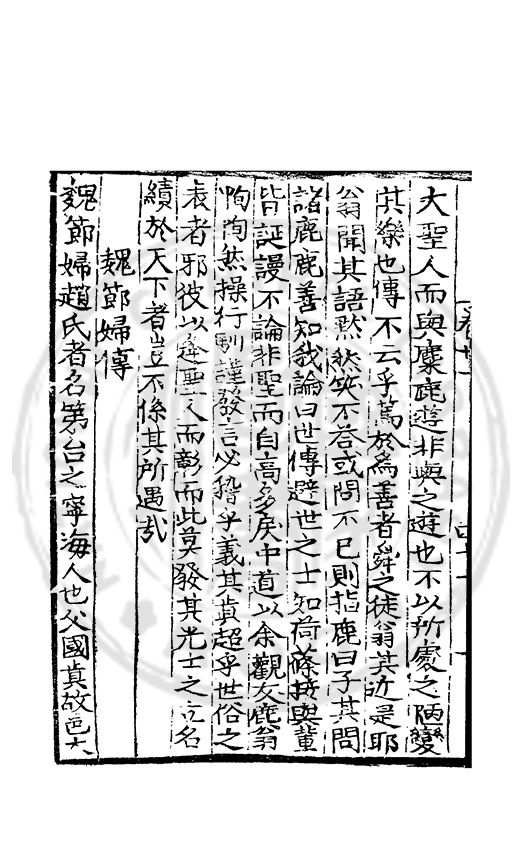 大聖人而與麋鹿遊非與之遊也不以所處之陋變
其樂也傳不云乎篤於為善者舜之徒翁其近是耶
翁聞其語默然笑不荅或問不已則指鹿曰子其問
諸鹿鹿善知我論曰世傳避世之士知荷蓧接輿輩
皆誕謾不論非聖而自高多戾中道以余觀友鹿翁
恂恂然操行馴謹發言必稽乎義其眞超乎世俗之
表者邪彼以逢聖人而彰而此莫發其光士之立名
績於天下者豈不係其所遇哉
魏節婦傳
魏節婦趙氏者名第台之寧海人也父國眞故邑大